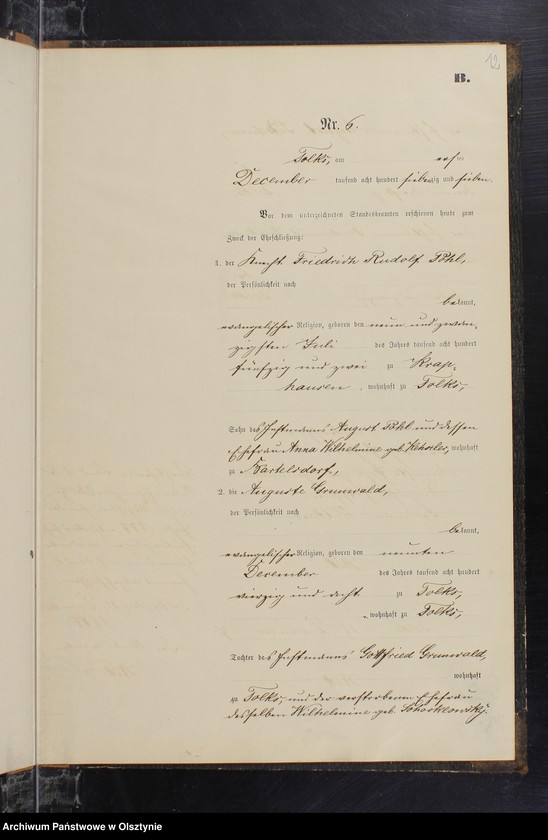 12
B.
Nr. 6.
Tolks, am ersten
December tausend acht hundert siebenzig und sieben.
Vor dem unterzeichneten Standesbeamten erschienen heute zum
Zweck der Eheschließung:
1. der Knecht Friedrich Rudolf Pöhl,
der Persönlichkeit nach
bekannt,
evangelischer Religion, geboren den neun und zwan-
zigsten Juli des Jahres tausend acht hundert
fünfzig und zwei zu Krap-
hausen, wohnhaft zu Tolks,
Sohn des Instmanns August Pöhl und dessen
Ehefrau Anna Wilhelmine geb. wohnhaft
zu Bartelsdorf,
2. die Auguste Grunwald,
der Persönlichkeit nach
bekannt,
evangelischer Religion, geboren den neunten
December des Jahres tausend acht hundert
vierzig und acht zu Tolks,
wohnhaft zu Tolks,
Tochter des Instmanns Gottfried Grunwald,
wohnhaft
zu Tolks, und der verstorbenen Ehefrau
desselben Wilhelmine geb.
Archiwum Państwowe w Olsztynie